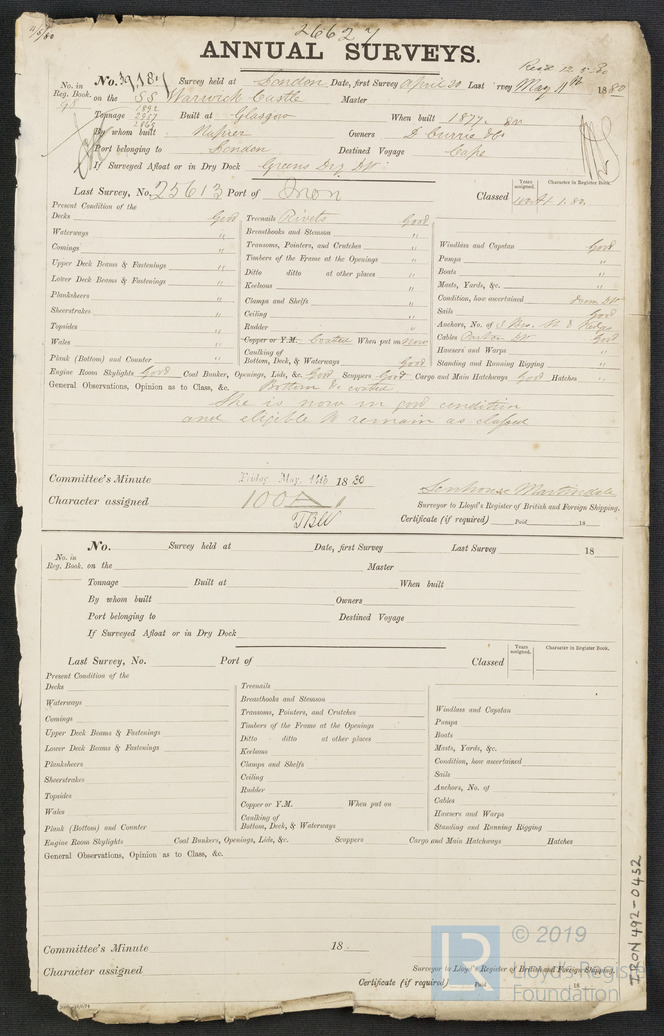 11/5/80
26627
ANNUAL SURVEYS.
No. Survey held at London Date, first Survey April 20 Last Survey May 11th 1880
No. in Reg. Book. on the SS Warwick Castle Master
Tonnage 2957 Built at Glasgow When built 1877
By whom built Napier Owners D Currie & Co
Port belonging to London Destined Voyage Cape
If Surveyed Afloat or in Dry Dock Greens Dry Dk
Last Survey, No. 25613 Port of Iron Classed 100A1 1.80
Years assigned. Character in Register Book.
Present Condition of the
Decks Good
Waterways "
Comings "
Upper Deck Beams & Fastenings "
Lower Deck Beams & Fastenings "
Planksheers "
Sheerstrakes "
Topsides "
Wales "
Plank (Bottom) and Counter "
Treenails Rivets Good
Breasthooks and Stemson "
Transoms, Pointers, and Crutches "
Timbers of the Frame at the Openings "
Ditto ditto at other places "
Keelsons "
Clamps and Shelfs "
Ceiling "
Rudder "
Copper or Y.M. Coated When put on now
Caulking of
Bottom, Deck, & Waterways Good
Windlass and Capstan Good
Pumps "
Boats "
Masts, Yards, &c. "
Condition, how ascertained from Dk
Sails Good
Anchors, No. of
Cables Good
Hawsers and Warps "
Standing and Running Rigging "
Engine Room Skylights Good Coal Bunkers, Openings, Lids, &c. Good Scuppers Good Cargo and Main Hatchways Good Hatches "
General Observations, Opinion as to Class, &c. Bottom &c coated
She is now in good condition
and eligible to remain as classed
Committee's Minute Friday May 14th 1880
Character assigned 100A1
TBW
Senhouse Martindale
Surveyor to Lloyd's Register of British and Foreign Shipping.
Certificate (if required) Paid 18
No. Survey held at Date, first Survey Last Survey 18
No. in Reg. Book. on the Master
Tonnage Built at When built
By whom built Owners
Port belonging to Destined Voyage
If Surveyed Afloat or in Dry Dock
Last Survey, No. Port of Classed
Years assigned. Character in Register Book.
Present Condition of the
Decks
Waterways
Comings
Upper Deck Beams & Fastenings
Lower Deck Beams & Fastenings
Planksheers
Sheerstrakes
Topsides
Wales
Plank (Bottom) and Counter
Treenails
Breasthooks and Stemson
Transoms, Pointers, and Crutches
Timbers of the Frame at the Openings
Ditto ditto at other places
Keelsons
Clamps and Shelfs
Ceiling
Rudder
Copper or Y.M. When put on
Caulking of
Bottom, Deck, & Waterways
Windlass and Capstan
Pumps
Boats
Masts, Yards, &c.
Condition, how ascertained
Sails
Anchors, No. of
Cables
Hawsers and Warps
Standing and Running Rigging
Engine Room Skylights Coal Bunkers, Openings, Lids, &c. Scuppers Cargo and Main Hatchways Hatches
General Observations, Opinion as to Class, &c.
Committee's Minute 18
Character assigned
Surveyor to Lloyd's Register of British and Foreign Shipping.
Certificate (if required) Paid 18
IRON 492-0452
LR © 2019
Lloyd's Register
Foundation